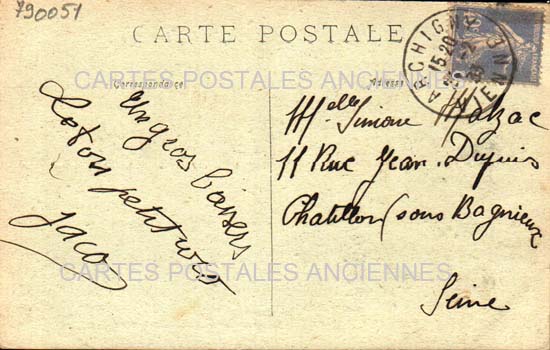 790051
CARTE POSTALE
Correspondance
Adresse
ARCHIGNY
VIENNE
15 20
CARTES POSTALES ANCIENNES
un gros baiser
de ton petit
Jaco
Melle Simone Malzac
11 Rue Jean Dupuis
Chatillon sous Bagneux
Seine
CARTES POSTALES ANCIENNES